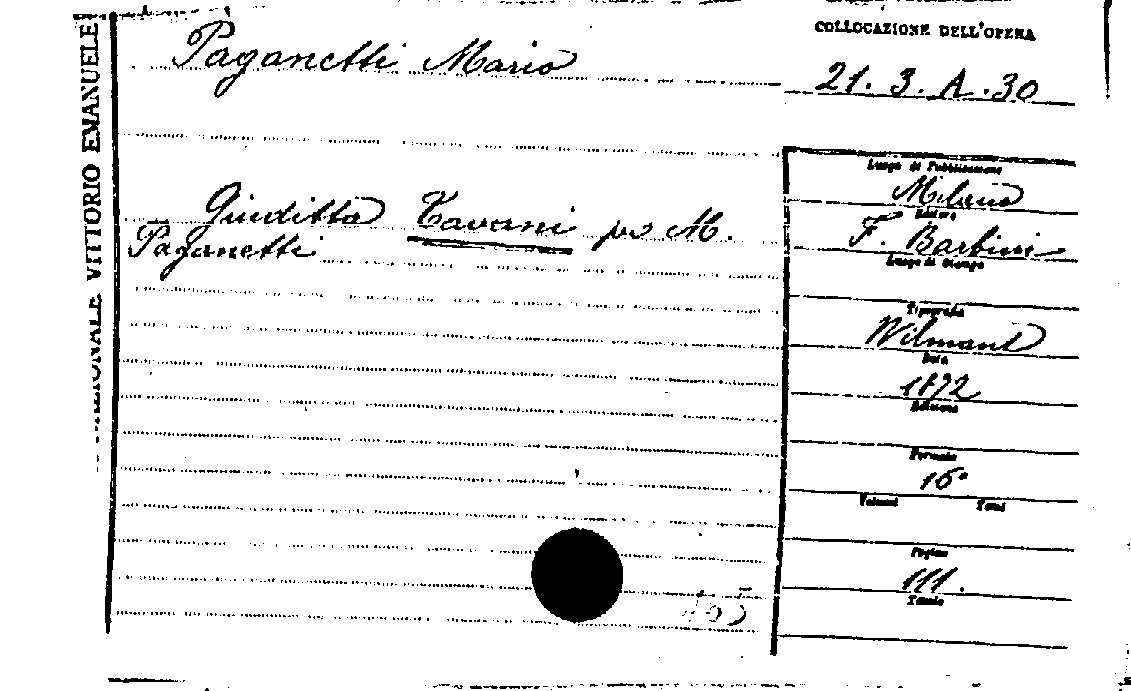 COLLOCAZIONE DELL'OPERA
Paganetti Mario
21. 3. A. 30
VITTORIO EMANUELE
Giuditta Tavani per M.
Paganetti
Luogo di Pubblicazione
Milano
Editore
F. Barbini
Luogo di Stampa
Tipografia
Wilmant
Data
1872
Edizione
Formato
16°
Volumi Tomi
Pagine
111.
Tavole